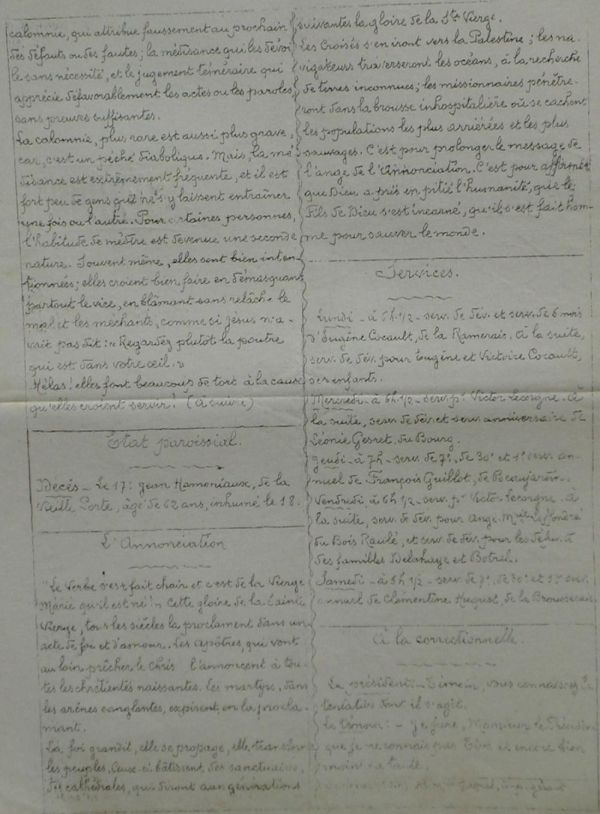 calomnie, qui attribue faussement au prochain
des défauts ou des fautes; la médisance qui les dévoi
le sans nécessité, et le jugement téméraire qui
apprécie défavorablement les actes ou les paroles
sans preuves suffisantes.
La calomnie, plus rare est aussi plus grave,
car, c'est un péché diabolique. Mais, la mé
disance est extrêmement fréquente, et il est
fort peu de gens qui ne s'y laissent entraîner
une fois ou l'autre. Pour certaines personnes,
l'habitude de médire est devenue une seconde
nature. Souvent même, elles sont bien inten
tionnées; elles croient bien faire en démasquant
partout le vice, en blâmant sans relâche le
mal et les méchants, comme si Jésus n'a-
vait pas dit: "Regardez plutôt la poutre
qui est dans votre œil."
Hélas! elles font beaucoup de tort à la cause
qu'elles croient servir! (A suivre)
Etat paroissial.
Décès - Le 17: Jean Hamoniaux, de la
Vieille Porte, âgé de 62 ans, inhumé le 18.
L'Annonciation
"Le Verbe s'est fait chair et c'est de la Vierge
Marie qu'il est né!" Cette gloire de la Sainte
Vierge, tous les siècles la proclament dans un
acte de foi et d'amour. Les Apôtres, qui vont
au loin prêcher le Christ l'annoncent à tou-
tes les chrétientés naissantes. Les martyrs, dans
les arènes sanglantes, expirent en la procla-
mant.
La foi grandit, elle se propage, elle transforme
les peuples. Ceux-ci bâtissent des sanctuaires,
des cathédrales, qui diront aux générations
suivantes la gloire de la Ste Vierge.
Les Croisés s'en iront vers la Palestine; les na-
vigateurs traverseront les océans, à la recherche
de terres inconnues; les missionnaires pénètre-
ront dans la brousse inhospitalière où se cachent
les populations les plus arriérées et les plus
sauvages. C'est pour prolonger le message de
l'ange de l'Annonciation. C'est pour affirmer
que Dieu a pris en pitié l'humanité, que le
Fils de Dieu s'est incarné, qu'il s'est fait hom-
me pour sauver le monde.
Services.
Lundi - à 6h 1/2 - serv. de dév. et serv. de 6 mois
d'Eugène Cocault, de la Ramerais. A la suite,
serv. de dév. pour Eugène et Victoire Cocault,
ses enfants.
Mercredi - à 6h 1/2 - serv. pr Victor Lecorgne. A
la suite, serv. de dév. et serv. anniversaire de
Léonie Gesret, du Bourg.
Jeudi - à 7h - serv. de 7e, de 30e et 1er serv. an-
nuel de François Guillot, de Beaujardin.
Vendredi à 6h 1/2 - serv. pr Victor Lecorgne. A
la suite, serv. de dév. pour Ange
du Bois Raulé, et serv. de dév. pour les
des familles Delahaye et Botrel.
Samedi - à 6h 1/2 - serv. de 7e, de 30e et 1er serv.
annuel de Clémentine de la
A la correctionnelle.
Le président - Témoin, vous connaissez
Le témoin: - Je jure, Monsieur le Président
que je ne connais pas et encore bien
moins